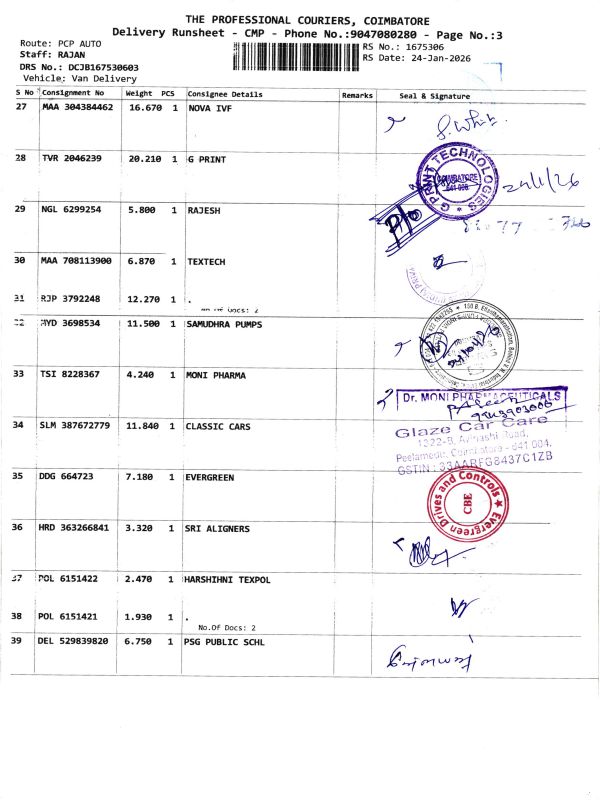 THE PROFESSIONAL COURIERS, COIMBATORE
Delivery Runsheet - CMP - Phone No.:9047080280 - Page No.:3
Route: PCP AUTO
Staff: RAJAN
DRS No.: DCJB167530603
Vehicle: Van Delivery
RS No.: 1675306
RS Date: 24-Jan-2026
S No Consignment No Weight PCS Consignee Details Remarks Seal & Signature
27 MAA 304384462 16.670 1 NOVA IVF
28 TVR 2046239 20.210 1 G PRINT
G PRINT TECHNOLOGIES
COIMBATORE
641 008.
24/1/26
29 NGL 6299254 5.800 1 RAJESH
P/O
30 MAA 708113900 6.870 1 TEXTECH
31 RJP 3792248 12.270 1 .
No.Of Docs: 2
32 HYD 3698534 11.500 1 SAMUDHRA PUMPS
33 TSI 8228367 4.240 1 MONI PHARMA
Dr. MONI PHARMACEUTICALS
34 SLM 387672779 11.840 1 CLASSIC CARS
Glaze Car Care
1322-B, Avinashi Road,
Peelamedu, Coimbatore - 641 004.
GSTIN : 33AARFG8437C1ZB
35 DDG 664723 7.180 1 EVERGREEN
Evergreen Drives and Controls
CBE
36 HRD 363266841 3.320 1 SRI ALIGNERS
37 POL 6151422 2.470 1 HARSHIHNI TEXPOL
38 POL 6151421 1.930 1 .
No.Of Docs: 2
39 DEL 529839820 6.750 1 PSG PUBLIC SCHL